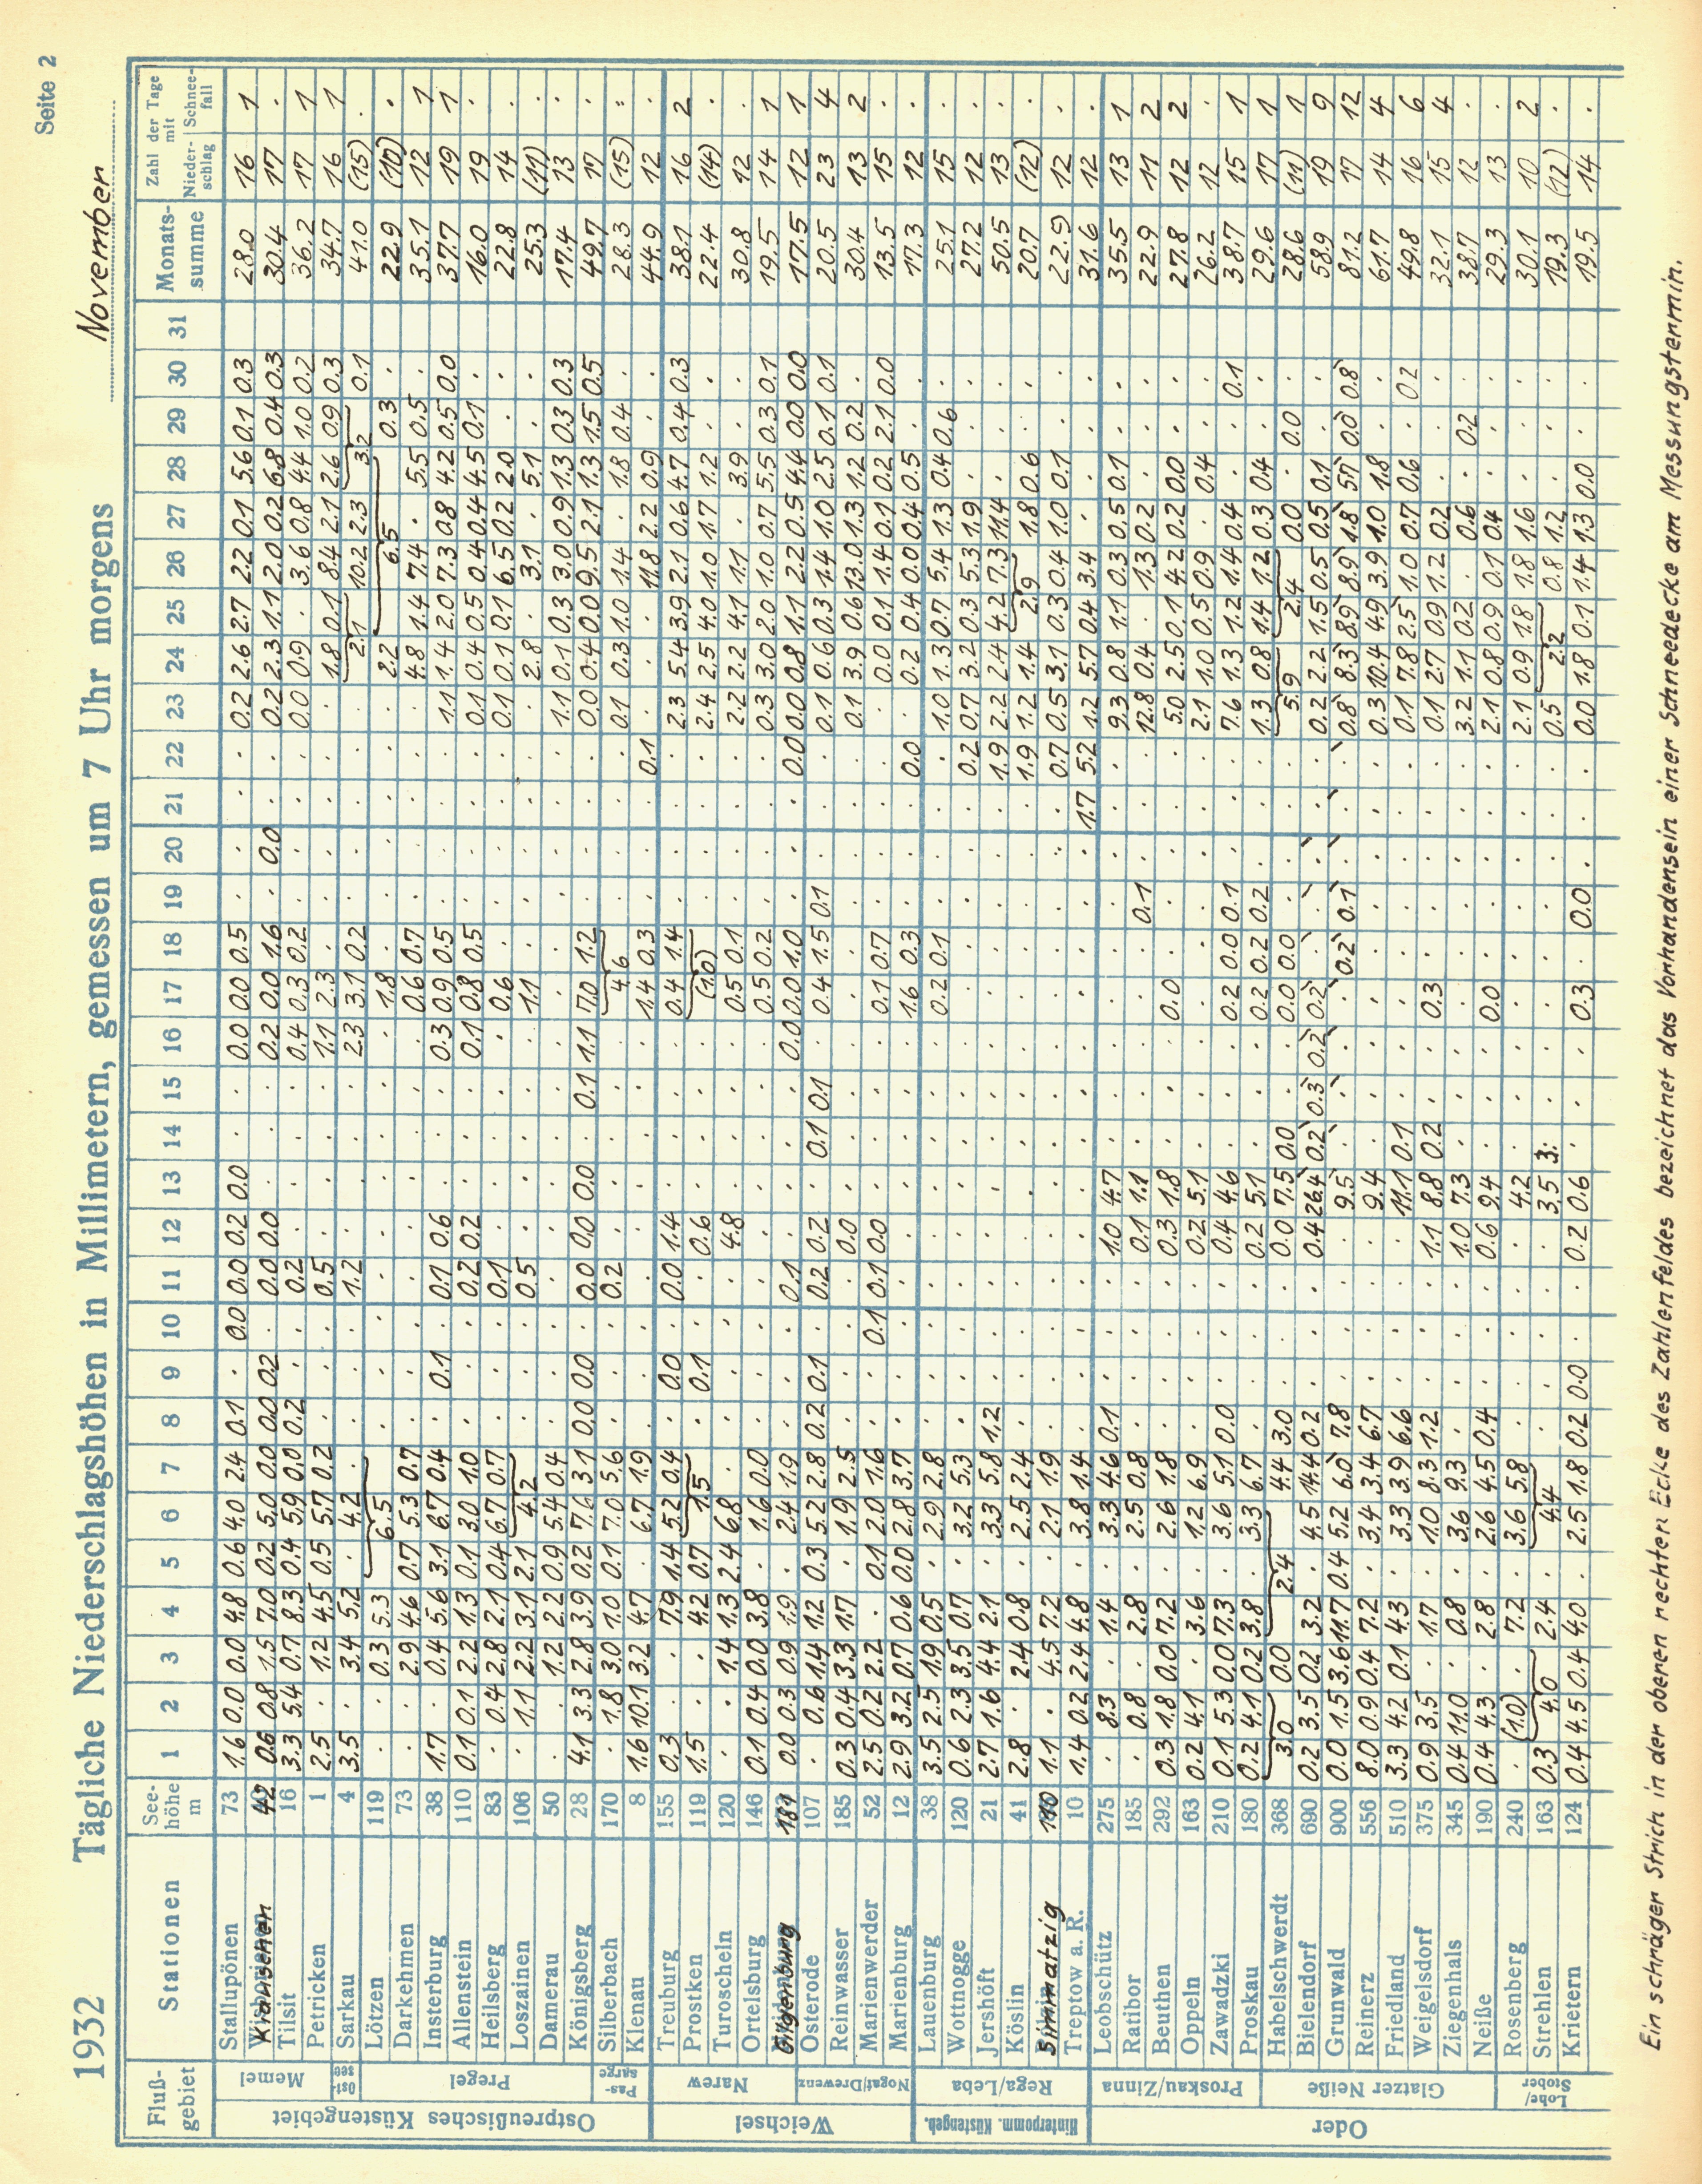 Seite 2
1932 Tägliche Niederschlagshöhen in Millimetern, gemessen um 7 Uhr morgens November
Fluß-gebiet Stationen See-höhe m 1 2 3 4 5 6 7 8 9 10 11 12 13 14 15 16 17 18 19 20 21 22 23 24 25 26 27 28 29 30 31 Monats-summe Zahl der Tage mit Nieder-schlag Schnee-fall
Ostpreußisches Küstengebiet
Memel
Stallupönen 73 1.6 0.0 0.0 4.8 0.6 4.0 2.4 0.1 . 0.0 0.0 0.2 0.0 . . 0.0 0.0 0.5 . . . . 0.2 2.6 2.7 2.2 0.1 5.6 0.1 0.3 28.0 16 1
Klauschen 42 0.6 0.8 1.5 7.0 0.2 5.0 0.0 0.0 0.2 . 0.0 0.0 . . . 0.2 0.0 1.6 . 0.0 . . 0.2 2.3 1.1 2.0 0.2 6.8 0.4 0.3 30.4 17 .
Tilsit 16 3.3 5.4 0.7 8.3 0.4 5.9 0.0 0.2 . . 0.2 . . . . 0.4 0.3 0.2 . . . . 0.0 0.9 . 3.6 0.8 4.4 1.0 0.2 36.2 17 1
Petricken 1 2.5 . 1.2 4.5 0.5 5.7 0.2 . . . 0.5 . . . . 1.1 2.3 . . . . . . 1.8 0.1 8.4 2.1 2.6 0.9 0.3 34.7 16 1
Ost-see
Sarkau 4 3.5 . 3.4 5.2 . 4.2 . . . . 1.2 . . . . 2.3 3.1 0.2 . . . . . 2.1 10.2 2.3 3.2 0.1 41.0 (15) .
Pregel
Lötzen 119 . . 0.3 5.3 6.5 . . . . . . . . . 1.8 . . . . . . 2.2 6.5 0.3 . 22.9 (10) .
Darkehmen 73 . . 2.9 4.6 0.7 5.3 0.7 . . . . . . . . . 0.6 0.7 . . . . . 4.8 1.4 7.4 . 5.5 0.5 . 35.1 12 1
Insterburg 38 1.7 . 0.4 5.6 3.1 6.7 0.4 . 0.1 . 0.1 0.6 . . . 0.3 0.9 0.5 . . . . 1.1 1.4 2.0 7.3 0.8 4.2 0.5 0.0 37.7 19 1
Allenstein 110 0.1 0.1 2.2 1.3 0.1 3.0 1.0 . . . 0.2 0.2 . . . 0.1 0.8 0.5 . . . . 0.1 0.4 0.5 0.4 0.4 4.5 0.1 . 16.0 19 .
Heilsberg 83 . 0.4 2.8 2.1 0.4 6.7 0.7 . . . 0.1 . . . . . 0.6 . . . . . 0.1 0.1 0.1 6.5 0.2 2.0 . . 22.8 14 .
Loszainen 106 . 1.1 2.2 3.1 2.1 4.2 . . . 0.5 . . . . . 1.1 . . . . . . 2.8 . 3.1 . 5.1 . . 25.3 (11) .
Damerau 50 . . 1.2 2.2 0.9 5.4 0.4 . . . . . . . . . . . . . . . 1.1 0.1 0.3 3.0 0.9 1.3 0.3 0.3 17.4 13 .
Königsberg 28 4.1 3.3 2.8 3.9 0.2 7.6 3.1 0.0 0.0 . 0.0 0.0 0.0 . 0.1 1.1 7.0 1.2 . . . . 0.0 0.4 0.0 9.5 2.1 1.3 1.5 0.5 49.7 17 .
Pas-sarge
Silberbach 170 . 1.8 3.0 1.0 0.1 7.0 5.6 . . . 0.2 . . . . . 4.6 . . . . 0.1 0.3 1.0 1.4 . 1.8 0.4 . 28.3 (15) .
Klenau 8 1.6 10.1 3.2 4.7 . 6.7 1.9 . . . . . . . . . 1.4 0.3 . . . 0.1 . . . 11.8 2.2 0.9 . . 44.9 12 .
Weichsel
Narew
Treuburg 155 0.3 . . 7.9 1.4 5.2 0.4 . 0.0 . 0.0 1.4 . . . . 0.4 1.4 . . . . 2.3 5.4 3.9 2.1 0.6 4.7 0.4 0.3 38.1 16 2
Prostken 119 1.5 . . 4.2 0.7 1.5 . 0.1 . . 0.6 . . . . (1.0) . . . . 2.4 2.5 4.0 1.0 1.7 1.2 . . 22.4 (14) .
Turoscheln 120 . . 1.4 1.3 2.4 6.8 . . . . . 4.8 . . . . 0.5 0.1 . . . . 2.2 2.2 4.1 1.1 . 3.9 . . 30.8 12 .
Ortelsburg 146 0.1 0.4 0.0 3.8 . 1.6 0.0 . . . . . . . . . 0.5 0.2 . . . . 0.3 3.0 2.0 1.0 0.7 5.5 0.3 0.1 19.5 14 1
Nogat/Drewenz
Gilgenburg 181 0.0 0.3 0.9 1.9 . 2.4 1.9 . . . 0.1 . . . . 0.0 0.0 1.0 . . . 0.0 0.0 0.8 1.1 2.2 0.5 4.4 0.0 0.0 17.5 12 1
Osterode 107 . 0.6 1.4 1.2 0.3 5.2 2.8 0.2 0.1 . 0.2 0.2 . 0.1 0.1 . 0.4 1.5 0.1 . . . 0.1 0.6 0.3 1.4 1.0 2.5 0.1 0.1 20.5 23 4
Reinwasser 185 0.3 0.4 3.3 1.7 . 1.9 2.5 . . . . 0.0 . . . . . . . . . . 0.1 3.9 0.6 13.0 1.3 1.2 0.2 . 30.4 13 2
Marienwerder 52 2.5 0.2 2.2 . 0.1 2.0 1.6 . . 0.1 0.1 0.0 . . . . 0.1 0.7 . . . . . 0.0 0.1 1.4 0.1 0.2 2.1 0.0 13.5 15 .
Marienburg 12 2.9 3.2 0.7 0.6 0.0 2.8 3.7 . . . . . . . . . 1.6 0.3 . . . 0.0 . 0.2 0.4 0.0 0.4 0.5 . . 17.3 12 .
Hinterpomm. Küstengeb.
Rega/Leba
Lauenburg 38 3.5 2.5 1.9 0.5 . 2.9 2.8 . . . . . . . . . 0.2 0.1 . . . . 1.0 1.3 0.7 5.4 1.3 0.4 0.6 . 25.1 15 .
Wottnogge 120 0.6 2.3 3.5 0.7 . 3.2 5.3 . . . . . . . . . . . . . . 0.2 0.7 3.2 0.3 5.3 1.9 . . . 27.2 12 .
Jershöft 21 2.7 1.6 4.4 2.1 . 3.3 5.8 1.2 . . . . . . . . . . . . . 1.9 2.2 2.4 4.2 7.3 11.4 . . . 50.5 13 .
Köslin 41 2.8 . 2.4 0.8 . 2.5 2.4 . . . . . . . . . . . . . . 1.9 1.2 1.4 2.9 1.8 0.6 . . 20.7 (12) .
Simmatzig 110 1.1 . 4.5 7.2 . 2.1 1.9 . . . . . . . . . . . . . . 0.7 0.5 3.1 0.3 0.4 1.0 0.1 . . 22.9 12 .
Treptow a. R. 10 1.4 0.2 2.4 4.8 . 3.8 1.4 . . . . . . . . . . . . . 1.7 5.2 1.2 5.7 0.4 3.4 . . . . 31.6 12 .
Oder
Proskau/Zinna
Leobschütz 275 . 8.3 . 1.4 . 3.3 4.6 0.1 . . . 1.0 4.7 . . . . . . . . . 9.3 0.8 1.1 0.3 0.5 0.1 . . 35.5 13 1
Ratibor 185 . 0.8 . 2.8 . 2.5 0.8 . . . . 0.1 1.1 . . . . . 0.1 . . . 12.8 0.4 . 1.3 0.2 . . . 22.9 11 2
Beuthen 292 0.3 1.8 0.0 7.2 . 2.6 1.8 . . . . 0.3 1.8 . . . 0.0 . . . . . 5.0 2.5 0.1 4.2 0.2 0.0 . . 27.8 12 2
Oppeln 163 0.2 4.1 . 3.6 . 1.2 6.9 . . . . 0.2 5.1 . . . . . . . . . 2.1 1.0 0.5 0.9 . 0.4 . . 26.2 12 .
Zawadzki 210 0.1 5.3 0.0 7.3 . 3.6 5.1 0.0 . . . 0.4 4.6 . . . 0.2 0.0 0.1 . . . 7.6 1.3 1.2 1.4 0.4 . . 0.1 38.7 15 1
Proskau 180 0.2 4.1 0.2 3.8 . 3.3 6.7 . . . . 0.2 5.1 . . . 0.2 0.2 0.2 . . . 1.3 0.8 1.4 1.2 0.3 0.4 . . 29.6 17 1
Glatzer Neiße
Habelschwerdt 368 3.0 0.0 2.4 4.4 3.0 . . . 0.0 7.5 0.0 . . 0.0 0.0 . . . . 5.9 2.4 0.0 . 0.0 . 28.6 (11) 1
Bielendorf 690 0.2 3.5 0.2 3.2 . 4.5 14.4 0.2 . . . 0.4 26.4 0.2 0.3 0.2 0.2 . . . . . 0.2 2.2 1.5 0.5 0.5 0.1 . . 58.9 19 9
Grunwald 900 0.0 1.5 3.6 11.7 0.4 5.2 6.0 7.8 . . . . 9.5 . . . . 0.2 0.1 . . . 0.8 8.3 8.9 8.9 1.8 5.7 0.0 0.8 81.2 17 12
Reinerz 556 8.0 0.9 0.4 7.2 . 3.4 3.4 6.7 . . . . 9.4 . . . . . . . . . 0.3 10.4 4.9 3.9 1.0 1.8 . . 61.7 14 4
Friedland 510 3.3 4.2 0.1 4.3 . 3.3 3.9 6.6 . . . . 11.1 0.1 . . . . . . . . 0.1 7.8 2.5 1.0 0.7 0.6 . 0.2 49.8 16 6
Weigelsdorf 375 0.9 3.5 . 1.7 . 1.0 8.3 1.2 . . . 1.1 8.8 0.2 . . 0.3 . . . . . 0.1 2.7 0.9 1.2 0.2 . . . 32.1 15 4
Ziegenhals 345 0.4 11.0 . 0.8 . 3.6 9.3 . . . . 1.0 7.3 . . . . . . . . . 3.2 1.1 0.2 . 0.6 . 0.2 . 38.7 12 .
Neiße 190 0.4 4.3 . 2.8 . 2.6 4.5 0.4 . . . 0.6 9.4 . . . 0.0 . . . . . 2.1 0.8 0.9 0.1 0.4 . . . 29.3 13 .
Lohe/Stober
Rosenberg 240 . (1.0) . 7.2 . 3.6 5.8 . . . . . 4.2 . . . . . . . . . 2.1 0.9 1.8 1.8 1.6 . . . 30.1 10 2
Strehlen 163 0.3 4.0 2.4 . 4.4 . . . . . 3.5 3. . . . . . . . . 0.5 2.2 0.8 1.2 . . . 19.3 (12) .
Krietern 124 0.4 4.5 0.4 4.0 . 2.5 1.8 0.2 0.0 . . 0.2 0.6 . . . 0.3 . 0.0 . . . 0.0 1.8 0.1 1.4 1.3 0.0 . . 19.5 14 .
Ein schräger Strich in der oberen rechten Ecke des Zahlenfeldes bezeichnet das Vorhandensein einer Schneedecke am Messungstermin.